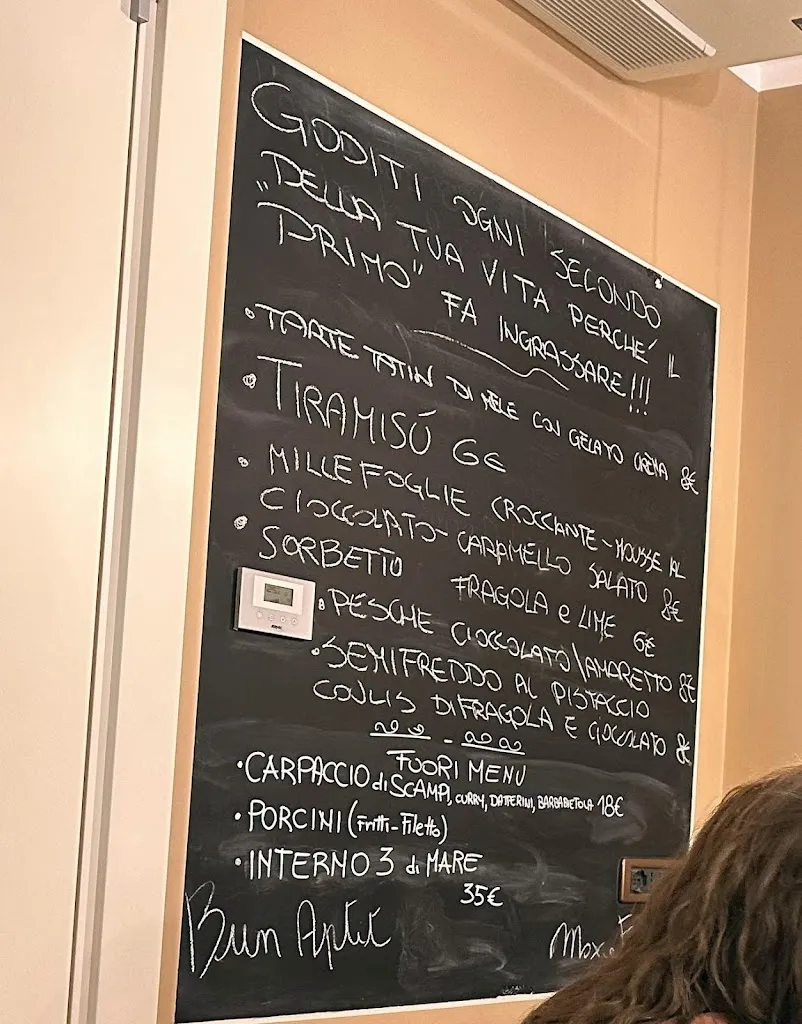 GODITI OGNI SECONDO
"DELLA TUA VITA PERCHÉ IL
PRIMO" FA INGRASSARE!!!
• TARTE TATIN DI MELE CON GELATO CREMA 8€
• TIRAMISÚ 6€
• MILLEFOGLIE CROCCIANTE - MOUSSE AL
CIOCCOLATO - CARAMELLO SALATO 8€
• SORBETTO FRAGOLA e LIME 6€
• PESCHE CIOCCOLATO\AMARETTO 8€
• SEMIFREDDO AL PISTACCIO
COULIS DI FRAGOLA E CIOCCOLATO 8€
FUORI MENU
• CARPACCIO di SCAMPI, CURRY, DATTERINI, BARBABIETOLA 18€
• PORCINI (Fritti-Filetto)
• INTERNO 3 di MARE
35€
Bun Aptit